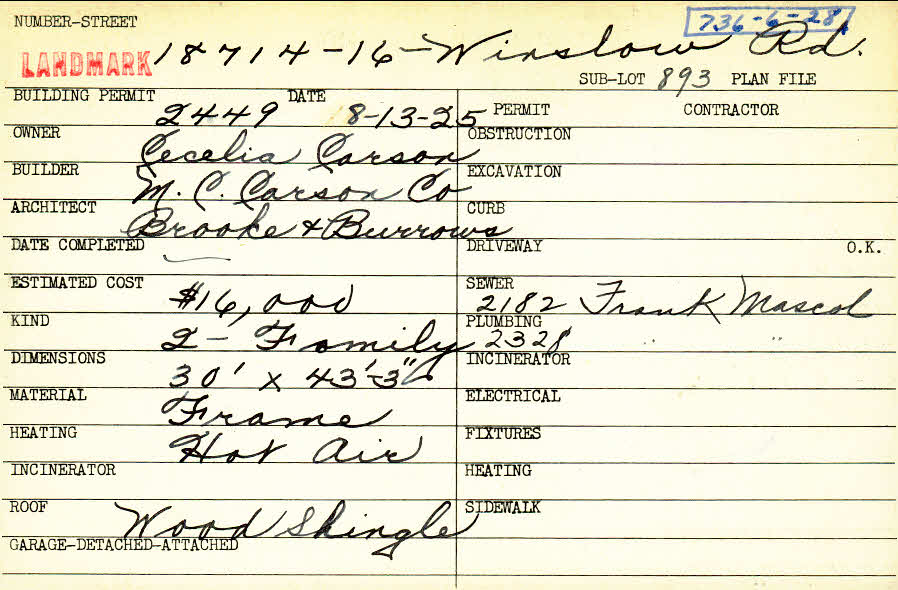 NUMBER-STREET
736-6-28
LANDMARK 18714-16-Winslow Rd.
SUB-LOT 893 PLAN FILE
BUILDING PERMIT 2449 DATE 8-13-25
PERMIT CONTRACTOR
OWNER Cecelia Carson
OBSTRUCTION
BUILDER M. C. Carson Co
EXCAVATION
ARCHITECT Brooke & Burrows
CURB
DATE COMPLETED
DRIVEWAY O.K.
ESTIMATED COST $16,000
SEWER 2182 Frank Mascol
KIND 2-Family
PLUMBING 2328 " "
DIMENSIONS 30' x 43'-3"
INCINERATOR
MATERIAL Frame
ELECTRICAL
HEATING Hot Air
FIXTURES
INCINERATOR
HEATING
ROOF Wood Shingle
SIDEWALK
GARAGE-DETACHED-ATTACHED